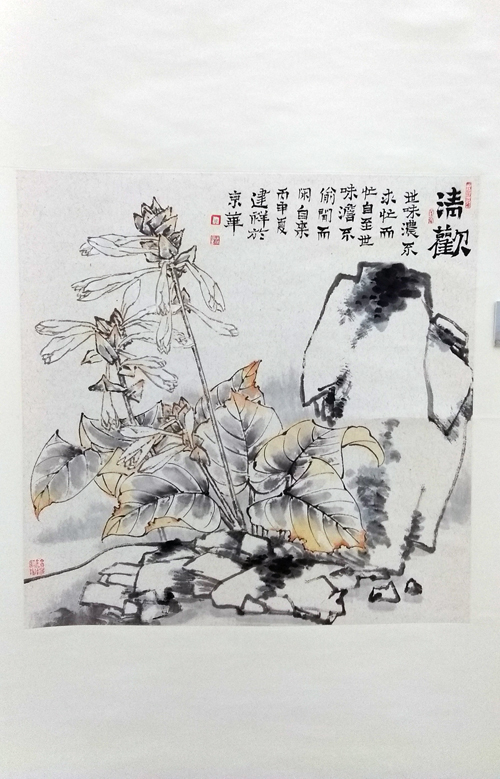 清歡
世味濃不
求忙而
忙自至世
味澹不
偷閒而
閑自来
丙申夏
建祥於
京華